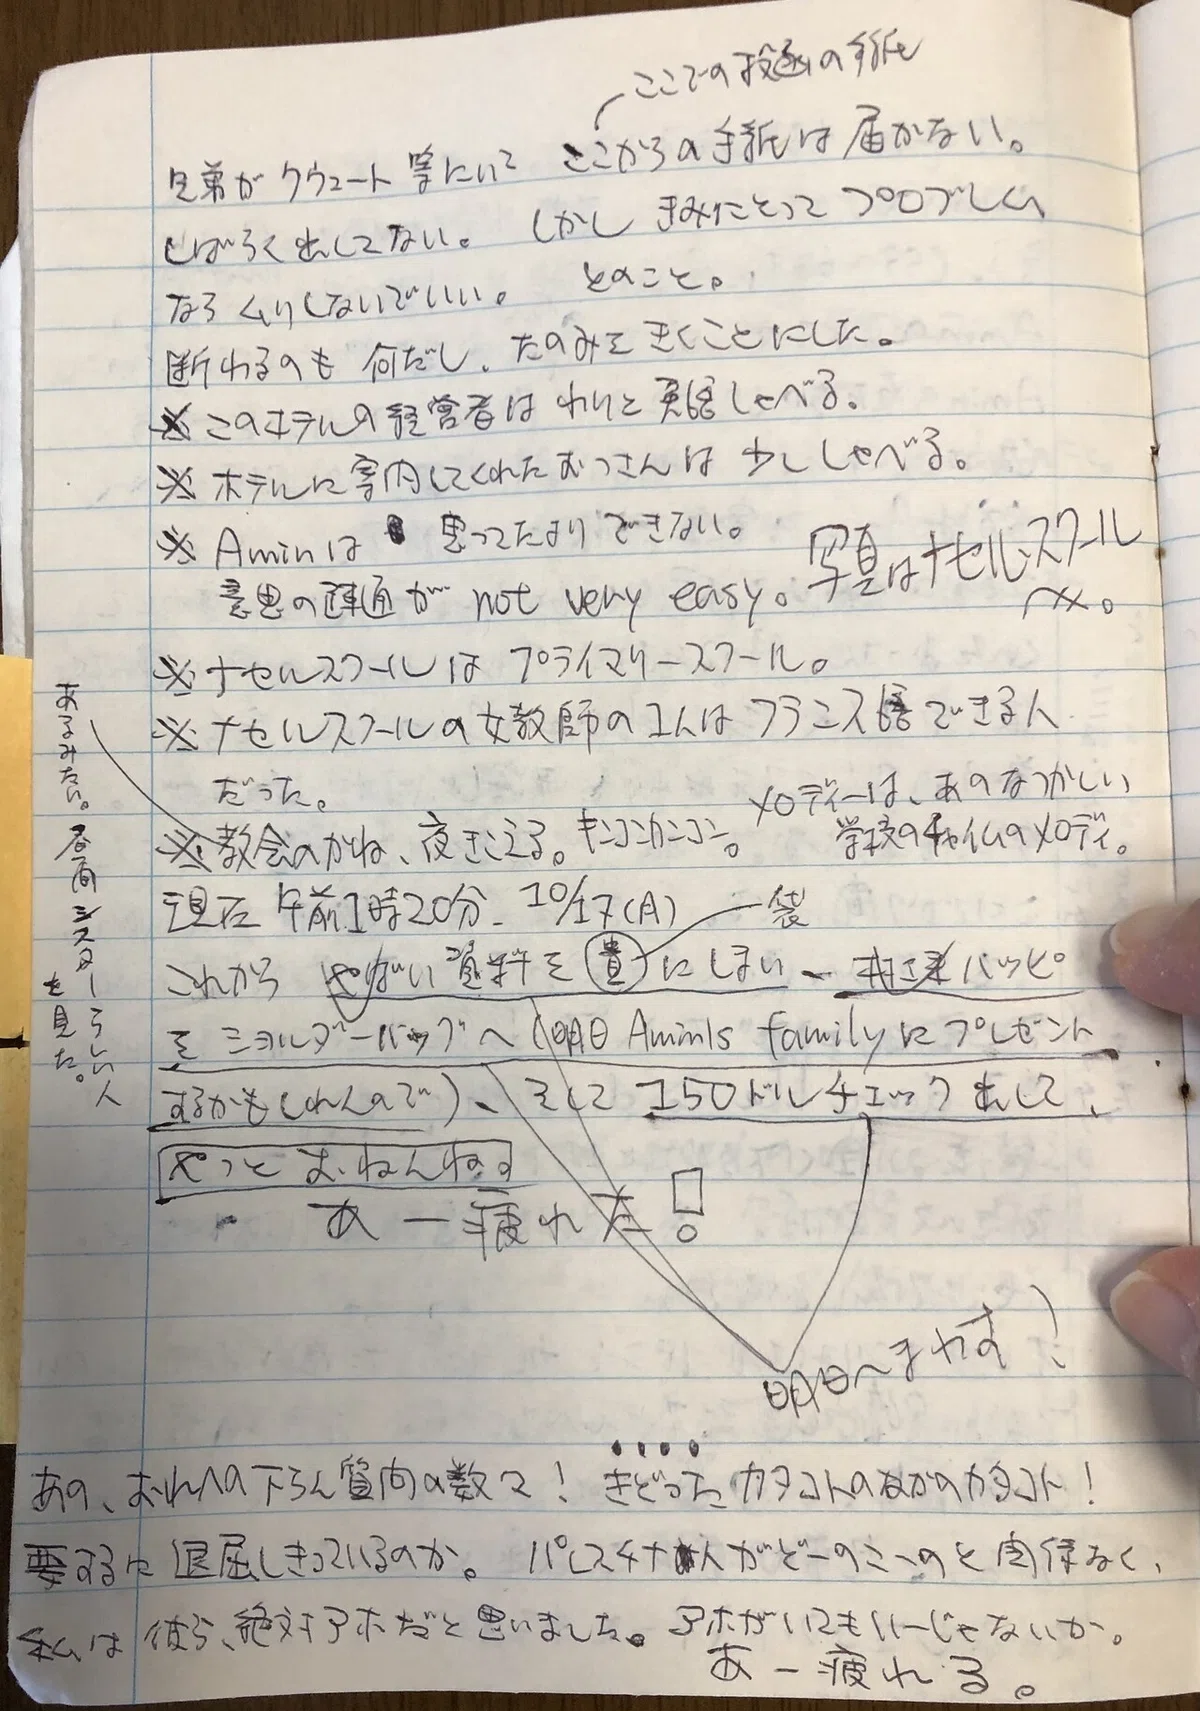 ここでの投函の手紙
兄弟がクウェート等にいて ここからの手紙は届かない。
しばらく出してない。 しかし きみにとって プロブレム
なら ムリしないでいい。 とのこと。
断わるのも 何だし、たのみを きくことにした。
※このホテルの経営者は わりと 英語しゃべる。
※ ホテルに案内してくれたおっさんは 少ししゃべる。
※ Aminは 思ってたよりできない。
意思の疎通が not very easy。
写真はナセル・スクール
※ ナセルスクールは プライマリースクール。
※ ナセルスクールの女教師の1人は フランス語できる人
だった。
※教会のかね、夜きこえる。キンコンカンコン。
メロディーは、あのなつかしい
学校のチャイムのメロディ。
あるみたい。昼間シスターらしい人
を見た。
現在 午前1時20分 10/17(A)
これから やばい資料を貴にしまい 袋
ハッピ
を ショルダーバッグへ(明日 Amin's familyにプレゼント
するかもしれんので)、そして 150ドルチェック出して、
やっと おねんね。
あー疲れた!
明日へまわす!
あの、おれへの下らん質問の数々! きどったカタコトのなかのカタコト!
要するに 退屈しきっているのか。 パレスチナ人がどーのこーのと関係なく、
私は 彼ら、絶対アホだと思いました。アホがいてもいーじゃないか。
あー疲れる。